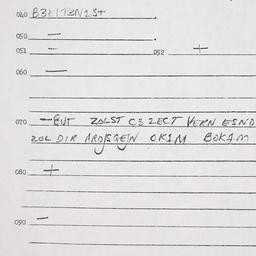 040 BREITBNIST .
050 — .
051 — 052 +
060 —
070 —BUT ZOLST ES ZECT VERN ESND
ZOL DIR AROJSGEJN OKIM BOKIM
080 +
090 —